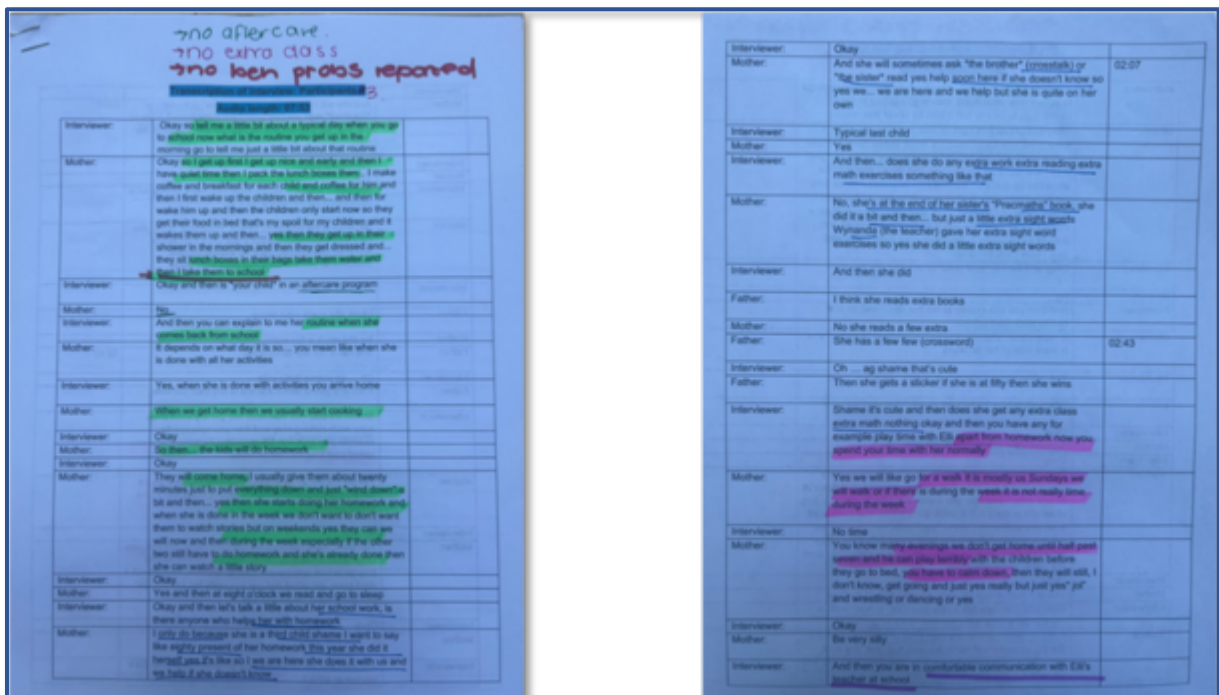 →no aftercare.
→no extra class
→no been probs reported
Transcription of Interview: Participant #3
Audio length: 07:53
Interviewer: Okay so tell me a little bit about a typical day when you go
to school now what is the routine you get up in the
morning go to tell me just a little bit about that routine
Mother: Okay so I get up first I get up nice and early and then I
have quiet time then I pack the lunch boxes then.. I make
coffee and breakfast for each child and coffee for him and
then I first wake up the children and then... and then for
wake him up and then the children only start now so they
get their food in bed that's my spot for my children and it
wakes them up and then... yes then they get up in their
shower in the mornings and then they get dressed and...
they sit lunch boxes in their bags take them water and
then I take them to school
Interviewer: Okay and then is "your child" in an aftercare program
Mother: No.
Interviewer: And then you can explain to me her routine when she
comes back from school
Mother: It depends on what day it is so... you mean like when she
is done with all her activities
Interviewer: Yes, when she is done with activities you arrive home
Mother: When we get home then we usually start cooking...
Interviewer: Okay
Mother: So then... the kids will do homework
Interviewer: Okay
Mother: They will come home, I usually give them about twenty
minutes just to put everything down and just "wind down" a
bit and then... yes then she starts doing her homework and
when she is done in the week we don't want to don't want
them to watch stories but on weekends yes they can we
will now and then during the week especially if the other
two still have to do homework and she's already done then
she can watch a little story
Interviewer: Okay
Mother: Yes and then at eight o'clock we read and go to sleep
Interviewer: Okay and then let's talk a little about her school work, is
there anyone who helps her with homework
Mother: I only do because she is a third child shame I want to say
like eighty present of her homework this year she did it
herself yes it's like so I we are here she does it with us and
we help if she doesn't know
Interviewer: Okay
Mother: And she will sometimes ask "the brother" (crosstalk) or 02:07
"the sister" read yes help soon here if she doesn't know so
yes we... we are here and we help but she is quite on her
own
Interviewer: Typical last child
Mother: Yes
Interviewer: And then... does she do any extra work extra reading extra
math exercises something like that
Mother: No, she's at the end of her sister's "Pracmaths" book, she
did it a bit and then... but just a little extra sight words
Wynanda (the teacher) gave her extra sight word
exercises so yes she did a little extra sight words
Interviewer: And then she did
Father: I think she reads extra books
Mother: No she reads a few extra
Father: She has a few few (crossword) 02:43
Interviewer: Oh ... ag shame that's cute
Father: Then she gets a sticker if she is at fifty then she wins
Interviewer: Shame it's cute and then does she get any extra class
extra math nothing okay and then you have any for
example play time with Elli apart from homework now you
spend your time with her normally
Mother: Yes we will like go for a walk it is mostly us Sundays we
will walk or if there is during the week it is not really time
during the week
Interviewer: No time
Mother: You know many evenings we don't get home until half past
seven and he can play terribly with the children before
they go to bed, you have to calm down, then they will still, I
don't know, get going and just yes really but just yes" jol"
and wrestling or dancing or yes
Interviewer: Okay
Mother: Be very silly
Interviewer: And then you are in comfortable communication with Elli's
teacher at school